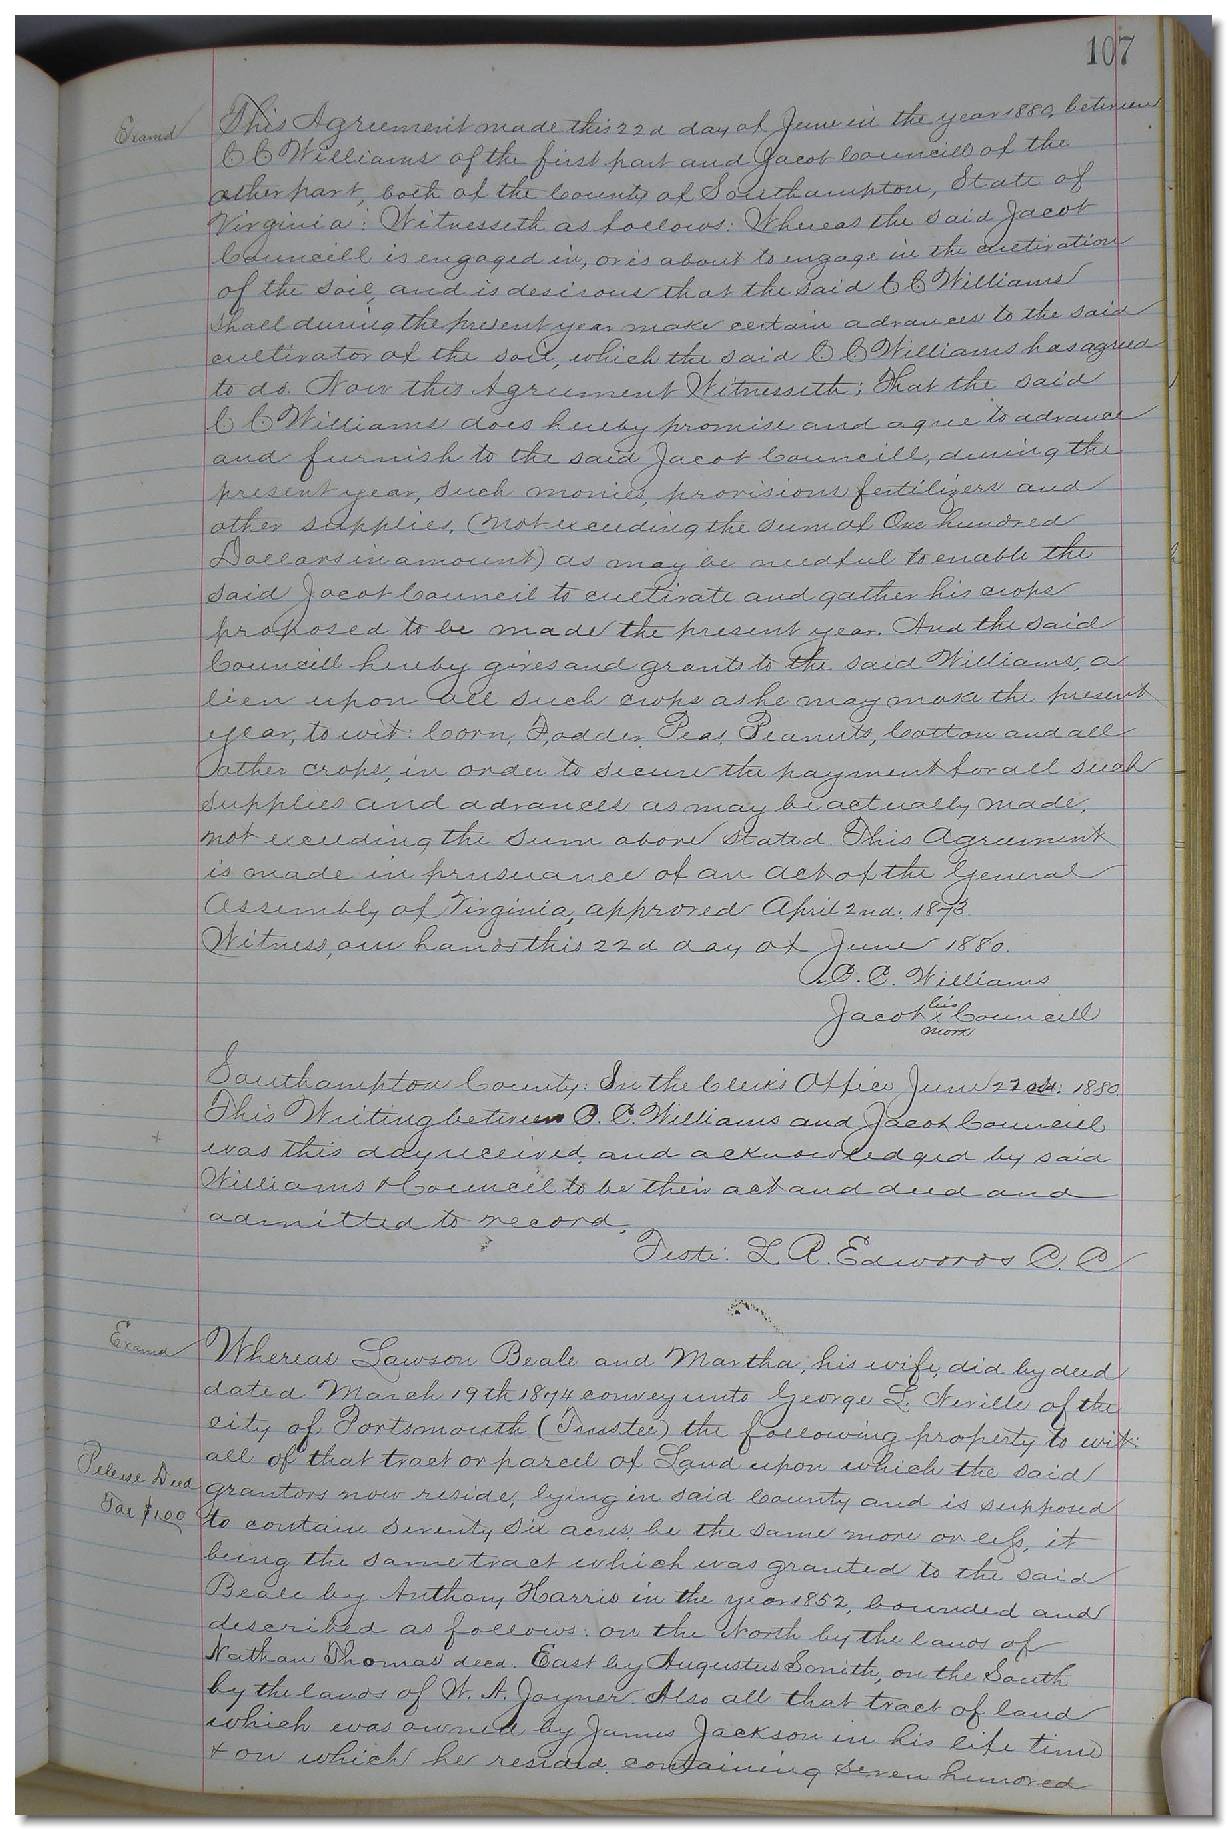 107
Examd
This Agreement made this 22d day of June in the year 1880, between
C C Williams of the first part and Jacob Councill of the
other part, both of the County of Southampton, State of
Virginia: Witnesseth as follows: Whereas the said Jacob
Councill is engaged in, or is about to engage in the cultivation
of the soil, and is desirous that the said C C Williams
shall during the present year make certain advances to the said
cultivator of the soil, which the said C C Williams has agreed
to do. Now this Agreement Witnesseth; That the said
C C Williams does hereby promise and agree to advance
and furnish to the said Jacob Councill, during the
present year, such monies, provisions fertilizers and
other supplies, (not exceeding the sum of One hundred
Dollars in amount) as may be needful to enable the
said Jacob Council to cultivate and gather his crops
proposed to be made the present year. And the said
Councill hereby gives and grants to the said Williams, a
lien upon all such crops as he may make the present
year, to wit: Corn, Fodder, Peas, Peanuts, Cotton and all
other crops, in order to secure the payment for all such
supplies and advances as may be actually made,
not exceeding the sum above stated. This Agreement
is made in prusuance of an act of the General
Assembly of Virginia, approved April 2nd. 1873.
Witness, our hands this 22d day of June 1880.
C. C. Williams
his
Jacob x Councill
mark
Southampton County: In the Clerk's Office June 22nd: 1880
This Writing between C. C. Williams and Jacob Councill
was this day received, and acknowledged by said
Williams & Council to be their act and deed and
admitted to record.
Teste: L. R. Edwards C. C
Examd
Whereas Lawson Beale and Martha, his wife, did by deed
dated March 19th 1874 convey unto George L. Neville of the
city of Portsmouth (Trustee) the following property to wit:
all of that tract or parcel of Land upon which the said
Release Deed
grantors now reside, lying in said County and is supposed
Tax $1.00
to contain seventy six acres, be the same more or less, it
being the same tract which was granted to the said
Beale by Anthony Harris in the year 1852, bounded and
described as follows: on the North by the lands of
Nathan Thomas decd. East by Augustus Smith, on the South
by the lands of W. A. Joyner. Also all that tract of land
which was owned by James Jackson in his life time
& on which he resided, containing seven hundred